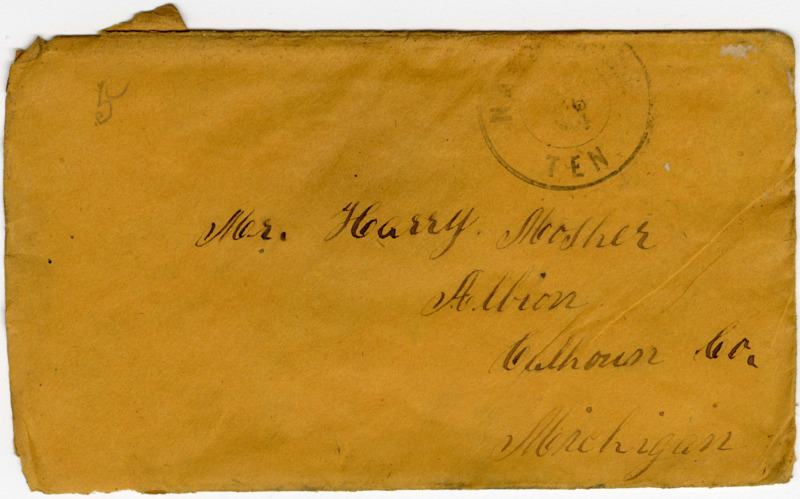 5
TEN
Mr. Harry. Mosher
Albion
Calhoun Co.
Michigan